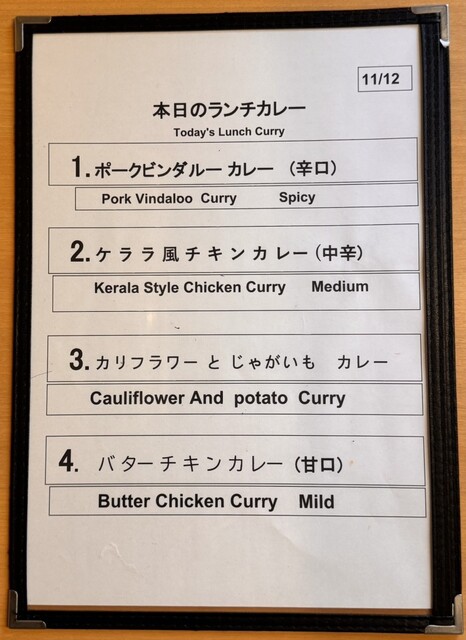 11/12
本日のランチカレー
Today's Lunch Curry
1.ポークビンダルー カレー (辛口)
Pork Vindaloo Curry Spicy
2.ケララ風チキンカレー(中辛)
Kerala Style Chicken Curry Medium
3.カリフラワー と じゃがいも カレー
Cauliflower And potato Curry
4. バターチキンカレー (甘口)
Butter Chicken Curry Mild